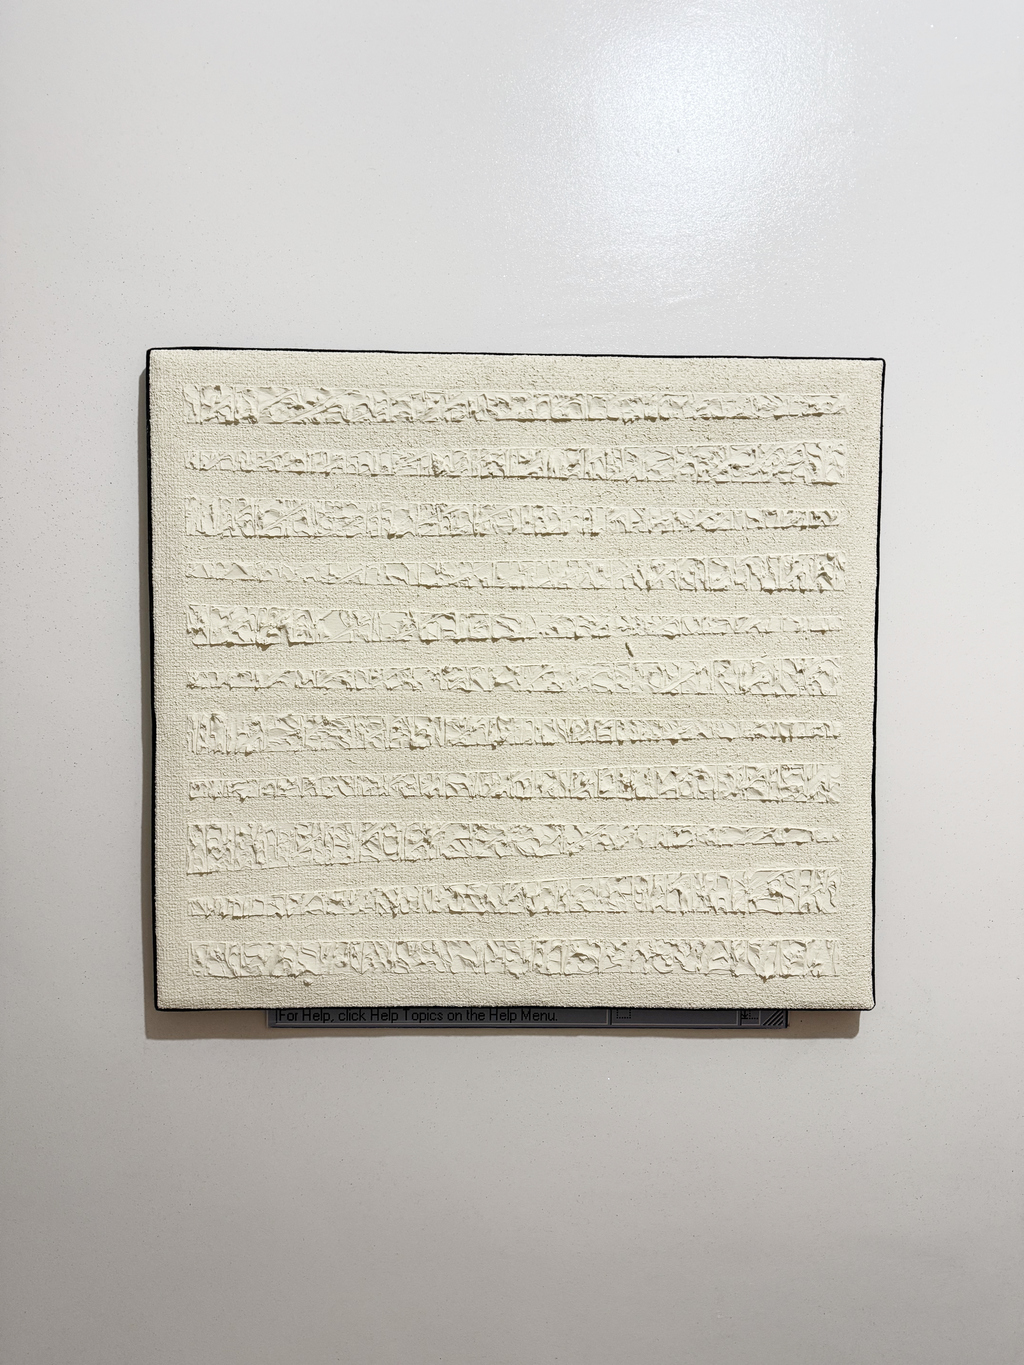 For Help, click Help Topics on the Help Menu.